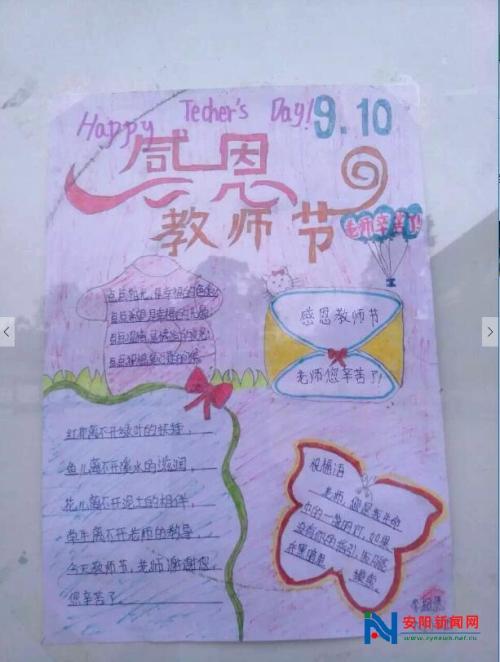 Happy Techer's Day!
9.10
感恩
教师节
老师辛苦了!
感恩教师节
老师您辛苦了!
红花离不开绿叶的扶持,
鱼儿离不开溪水的滋润,
花儿离不开泥土的相伴,
学生离不开老师的教导,
今天教师节,老师谢谢您,
您辛苦了
祝福语
老师,您是我生命
中的一盏明灯,如果
没有你的指引,我只能
在黑暗里
摸索
安阳新闻网
www.aynews.net.cn